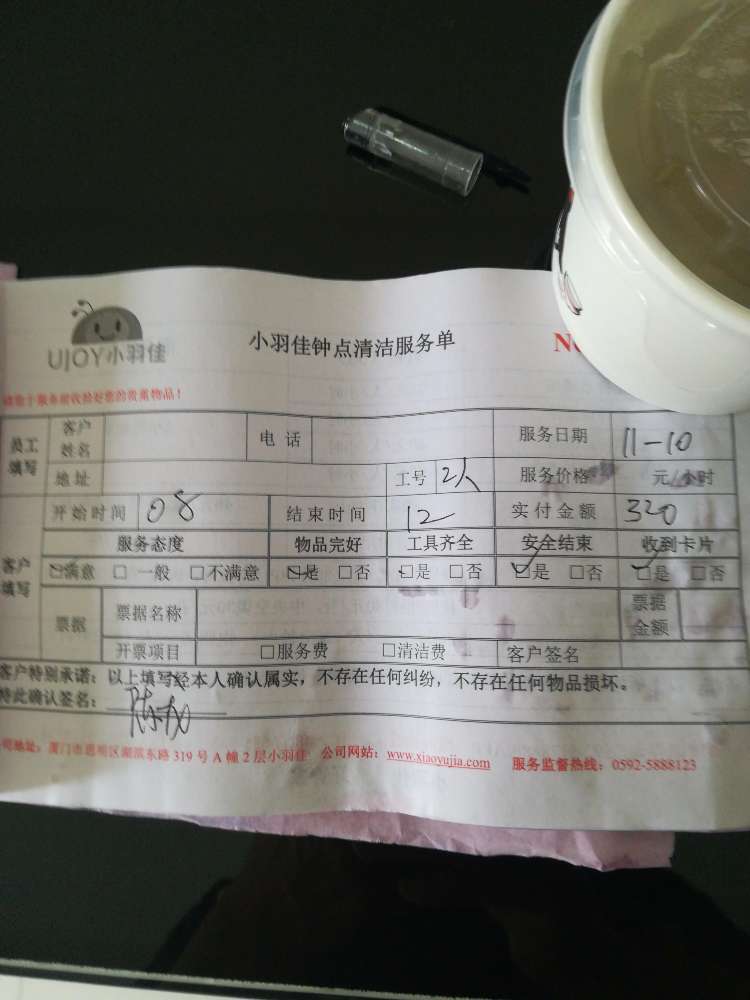 UJOY小羽佳
小羽佳钟点清洁服务单
N
员工填写 客户姓名 电话 服务日期 11-10
地址 工号 2人 服务价格 元/小时
客户填写 开始时间 08 结束时间 12 实付金额 320
服务态度 物品完好 工具齐全 安全结束 收到卡片
☑满意 □一般 □不满意 ☑是 □否 ☑是 □否 ☑是 □否 ☑是 □否
票据 票据名称 票据金额
开票项目 □服务费 □清洁费 客户签名
客户特别承诺：以上填写经本人确认属实，不存在任何纠纷，不存在任何物品损坏。
特此确认签名：
司地址：厦门市思明区湖滨东路319号A幢2层小羽佳 公司网站：www.xiaoyujia.com 服务监督热线：0592-5888123